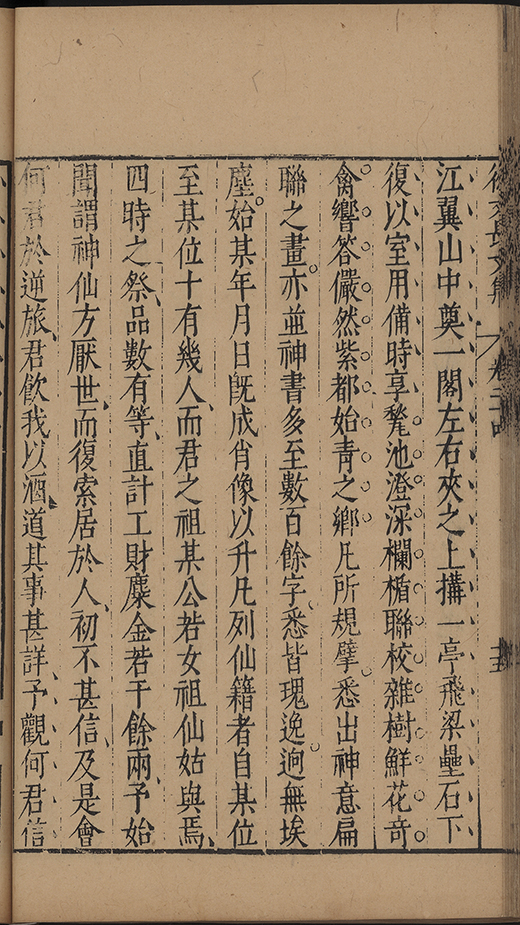 徐文長文集 卷二十四
江翼山中奠一閣左右夾之上搆一亭飛梁壘石下
復以室用備時享甃池澄深欄楯聯校雜樹鮮花奇
禽響答儼然紫都始青之鄉凡所規擘悉出神意扁
聯之畫亦並神書多至數百餘字悉皆瑰逸逈無埃
𡏖始某年月日旣成肖像以升凡列仙籍者自某位
至某位十有幾人而君之祖某公若女祖仙姑與焉
四時之祭品數有等直計工財麋金若干餘兩予始
聞謂神仙方厭世而復索居於人初不甚信及是會
何君於逆旅君飲我以酒道其事甚詳予觀何君信